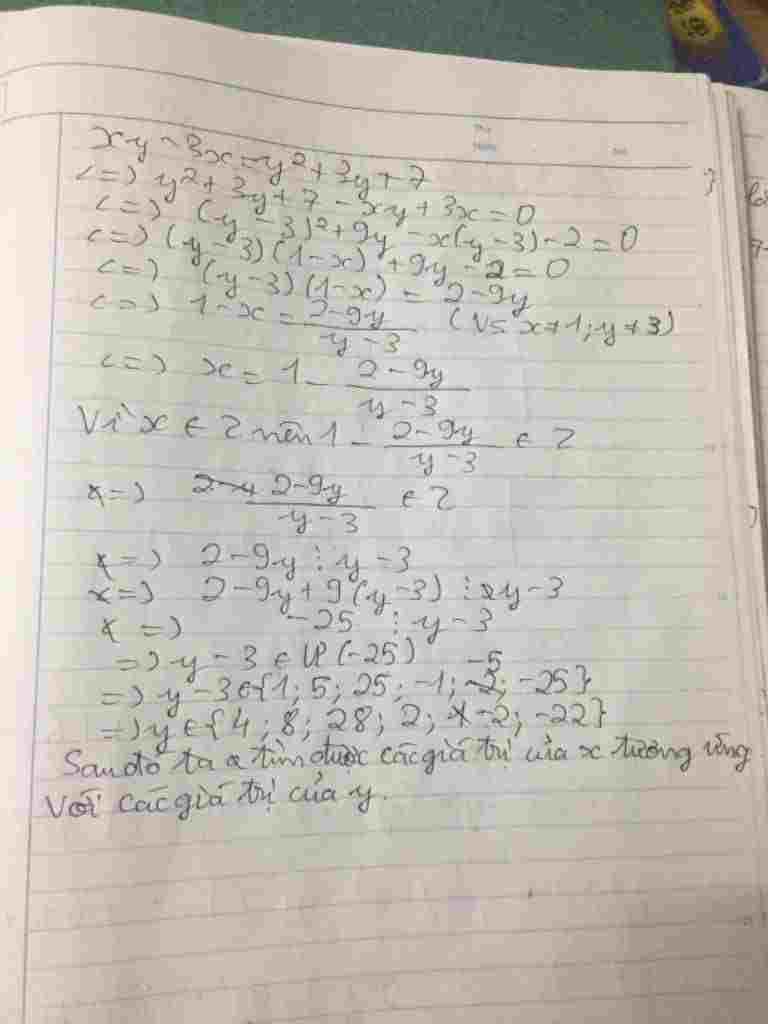 xy - 3x = y² + 3y + 7
<=> y² + 3y + 7 - xy + 3x = 0
<=> (y - 3)² + 9y - x(y - 3) - 2 = 0
<=> (y - 3)(1 - x) + 9y - 2 = 0
<=> (y - 3)(1 - x) = 2 - 9y
<=> 1 - x = (2 - 9y)/(y - 3) (Vs x ≠ 1; y ≠ 3)
<=> x = 1 - (2 - 9y)/(y - 3)
Vì x ∈ Z nên 1 - (2 - 9y)/(y - 3) ∈ Z
=> (2 - 9y)/(y - 3) ∈ Z
=> 2 - 9y ⋮ y - 3
=> 2 - 9y + 9(y - 3) ⋮ y - 3
=> -25 ⋮ y - 3
=> y - 3 ∈ Ư(-25)
=> y - 3 ∈ {1; 5; 25; -1; -5; -25}
=> y ∈ {4; 8; 28; 2; -2; -22}
Sau đó ta tìm được các giá trị của x tương ứng
Với các giá trị của y.